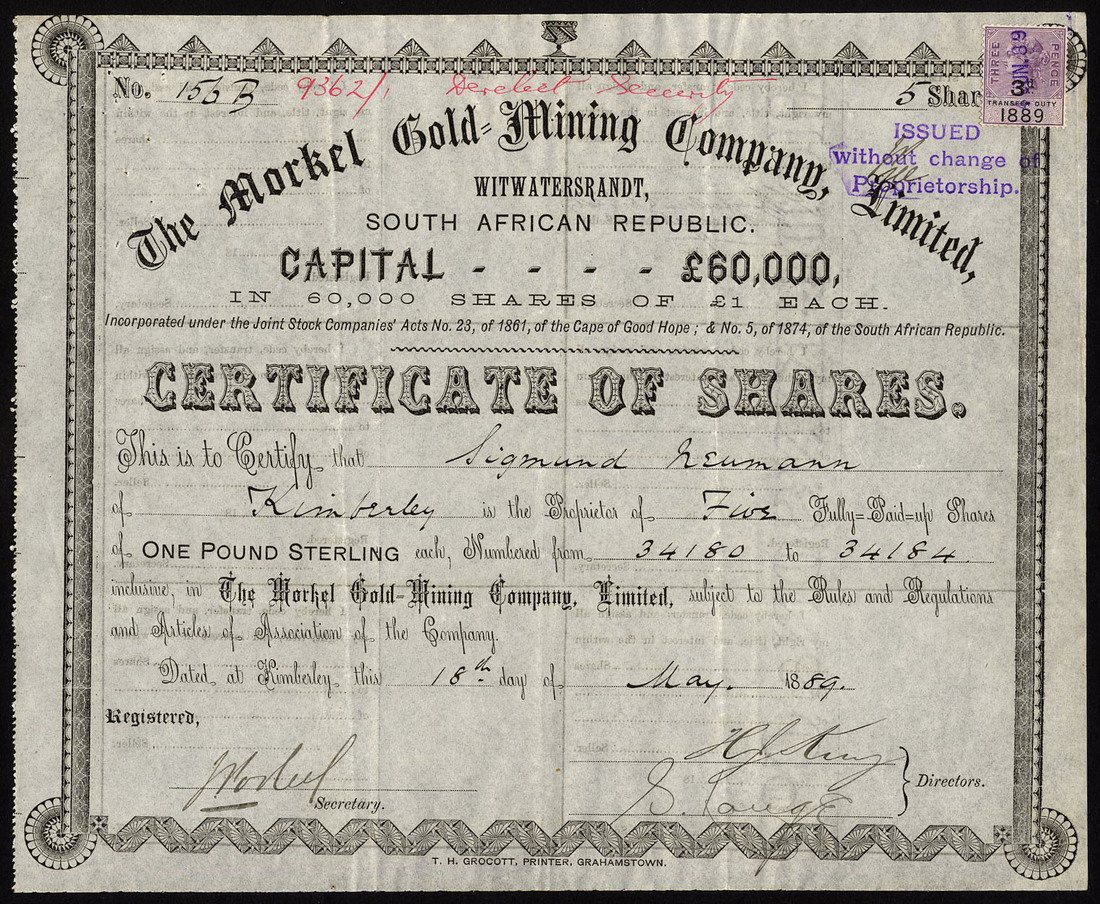 No. 156 B 9362/1 Derelect Security 5 Shar
THREE PENCE
JUN. 89
3
TRANSFER DUTY
1889
ISSUED
without change of
Proprietorship.
The Morkel Gold=Mining Company, Limited,
WITWATERSRANDT,
SOUTH AFRICAN REPUBLIC.
CAPITAL - - - - £60,000,
IN 60,000 SHARES OF £1 EACH.
Incorporated under the Joint Stock Companies' Acts No. 23, of 1861, of the Cape of Good Hope; & No. 5, of 1874, of the South African Republic.
CERTIFICATE OF SHARES.
This is to Certify that Sigmund Neumann
of Kimberley is the Proprietor of Five Fully=Paid=up Shares
of ONE POUND STERLING each, Numbered from 34180 to 34184
inclusive, in The Morkel Gold=Mining Company, Limited, subject to the Rules and Regulations
and Articles of Association of the Company.
Dated at Kimberley this 18th day of May. 1889.
Registered,
Secretary.
Directors.
T. H. GROCOTT, PRINTER, GRAHAMSTOWN.